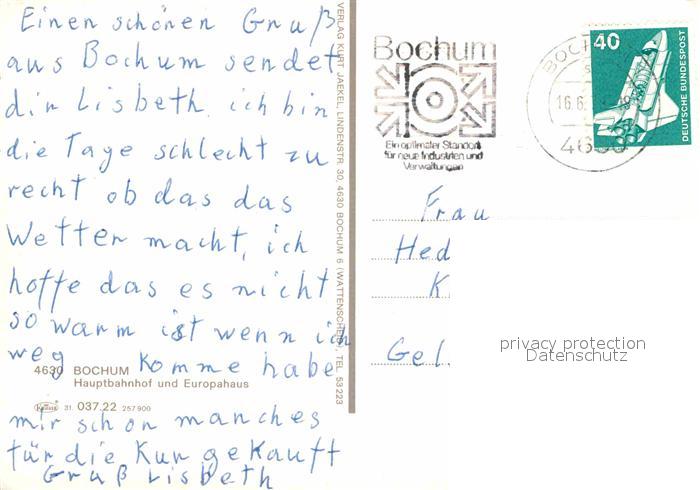 Einen schönen Gruß
aus Bochum sendet
dir Lisbeth ich bin
die Tage schlecht zu
recht ob das das
Wetter macht, ich
hoffe das es nicht
so warm ist wenn ich
weg komme habe
mir schon manches
für die Kur gekauft
Gruß Lisbeth
4630 BOCHUM
Hauptbahnhof und Europahaus
31. 037.22 257900
VERLAG KURT JAEKEL, LINDENSTR. 30, 4630 BOCHUM 6 (WATTENSCHEID), TEL. 53223
Bochum
Ein optimaler Standort
für neue Industrien und
Verwaltungen
16.6.
40
DEUTSCHE BUNDESPOST
Frau
Hed
K
Gel
privacy protection
Datenschutz